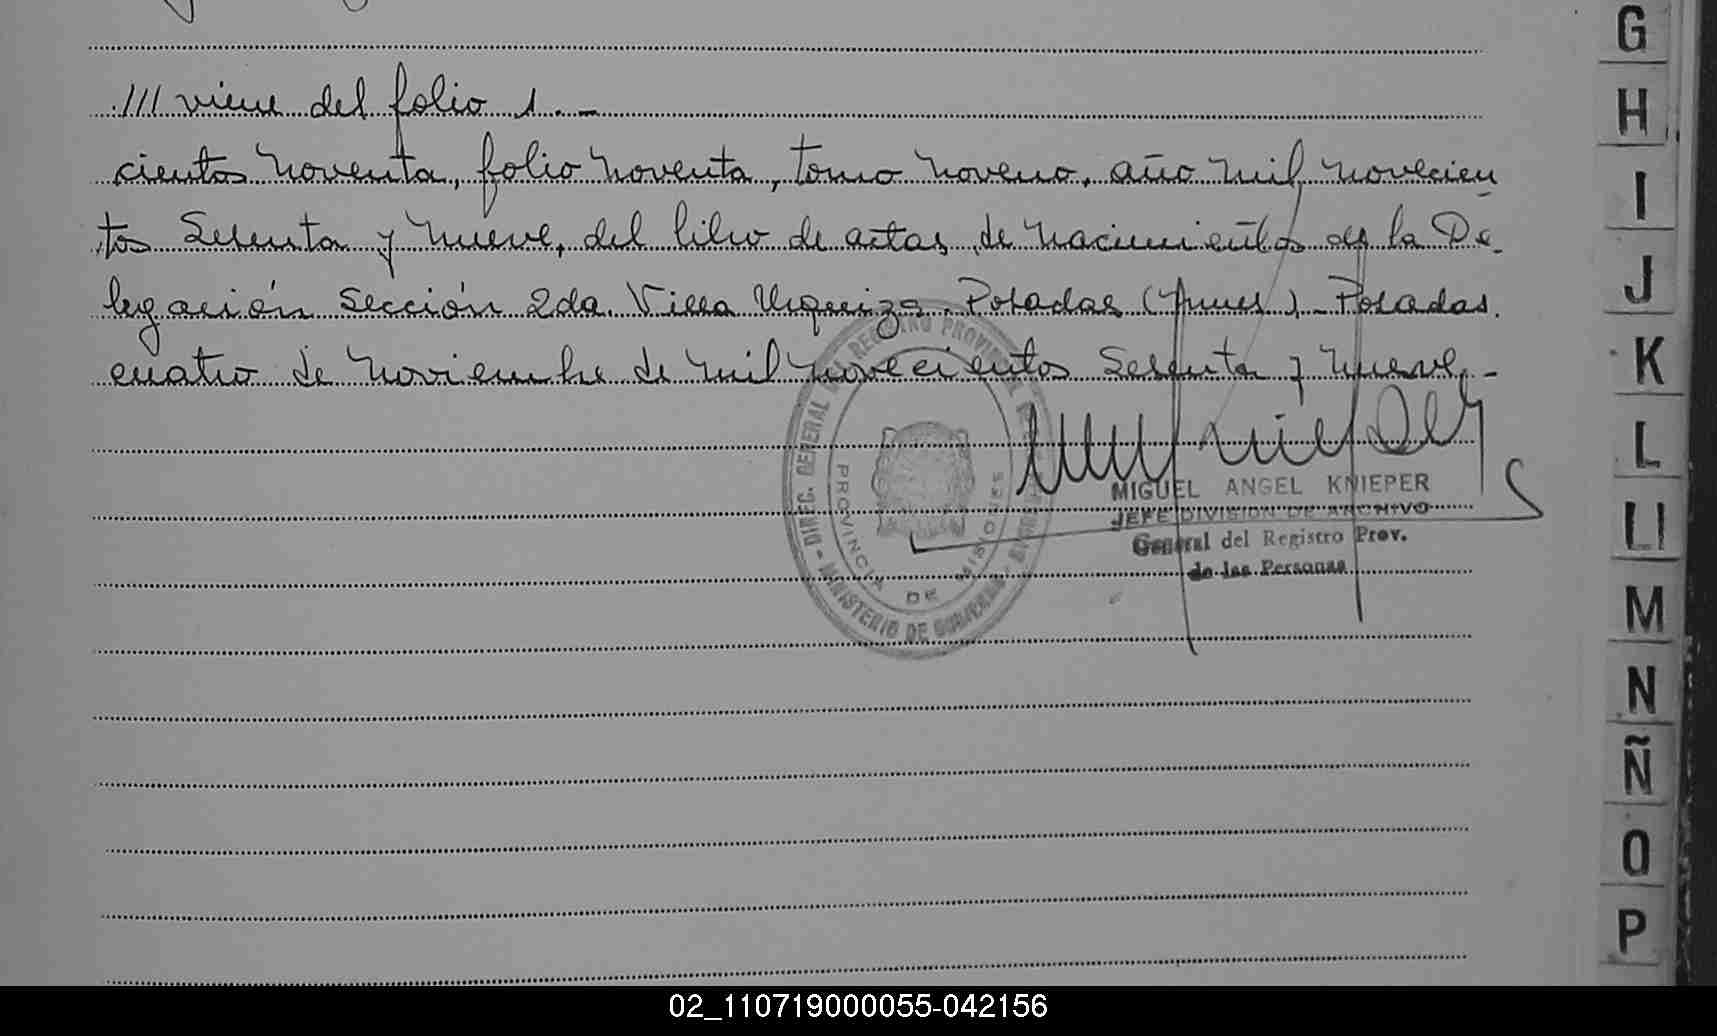 G
H
I
J
K
L
Ll
M
N
Ñ
O
P
/// viene del folio 1. -
cientos noventa, folio noventa, tomo noveno, año mil novecien
tos Sesenta y nueve, del libro de actas de nacimientos de la De
legación Sección 2da. Villa Urquiza. Posadas (Mnes) - Posadas.
cuatro de noviembre de mil novecientos Sesenta y nueve. -
DIREC. GENERAL DEL REGISTRO PROVINCIAL
PROVINCIA DE MISIONES
MINISTERIO DE GOBIERNO
MIGUEL ANGEL KNIEPER
JEFE DIVISION DE ARCHIVO
General del Registro Prov.
de las Personas
02_110719000055-042156